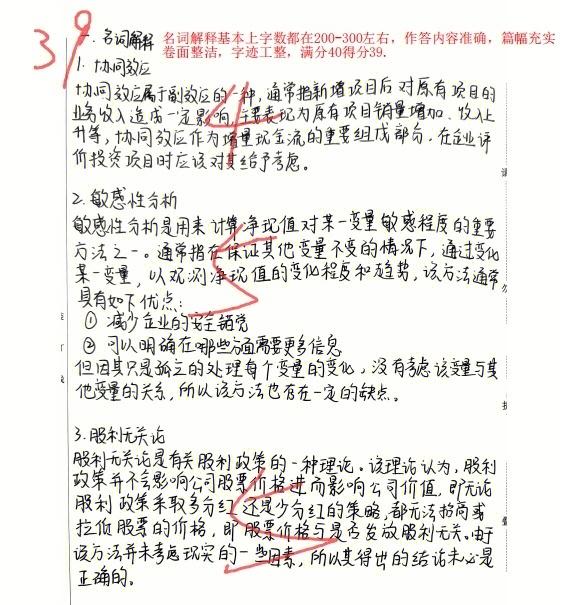 39
一. 名词解释
名词解释基本上字数都在200-300左右，作答内容准确，篇幅充实
卷面整洁，字迹工整，满分40得分39.
1. 协同效应
协同效应属于副效应的一种，通常指新增项目后对原有项目的
业务收入造成一定影响，主要表现为原有项目销量增加、收入上
升等，协同效应作为增量现金流的重要组成部分，在企业评
价投资项目时应该对其给予考虑。
4
2. 敏感性分析
敏感性分析是用来计算净现值对某一变量敏感程度的重要
方法之一。通常指在保证其他变量不变的情况下，通过变化
某一变量，以观测净现值的变化程度和趋势，该方法通常
具有如下优点：
① 减少企业的安全错觉
② 可以明确在哪些方面需要更多信息
但因其只是孤立的处理每个变量的变化，没有考虑该变量与其
他变量的关系，所以该方法也存在一定的缺点。
5
3. 股利无关论
股利无关论是有关股利政策的一种理论。该理论认为，股利
政策并不会影响公司股票价格进而影响公司价值，即无论
股利政策采取多分红还是少分红的策略，都无法抬高或
拉低股票的价格，即股票价格与是否发放股利无关。由于
该方法并未考虑现实的一些因素，所以其得出的结论未必是
正确的。
5